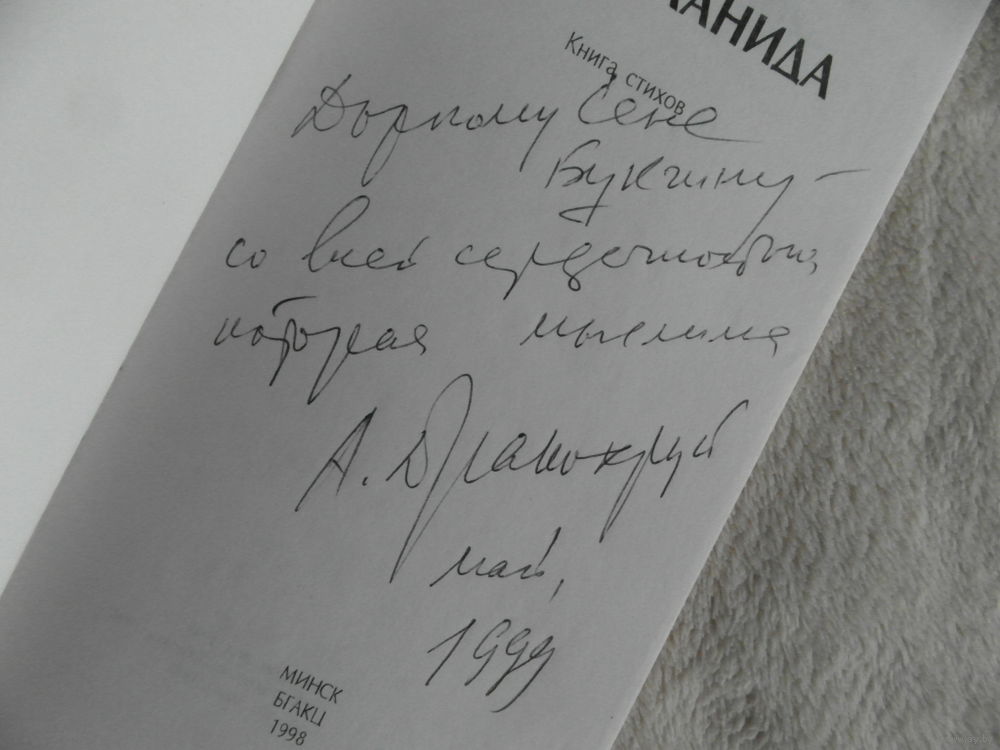 АНИДА
Книга стихов
Дорогому Сене
Букчину –
со всей сердечностью,
которая мыслима
А. Драгохруст
май,
1999
МИНСК
БГАКЦ
1998